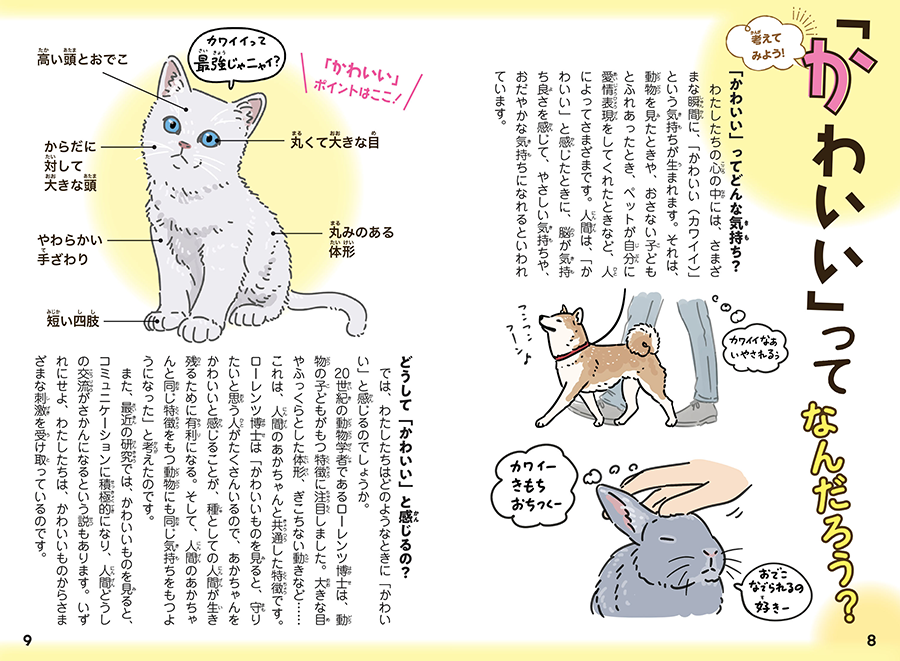 考えて
みよう！
「かわいい」って
なんだろう？
「かわいい」ってどんな気持ち？
　わたしたちの心の中には、さまざ
まな瞬間に、「かわいい（カワイイ）」
という気持ちが生まれます。それは、
動物を見たときや、おさない子ども
とふれあったとき、ペットが自分に
愛情表現をしてくれたときなど、人
によってさまざまです。人間は、「か
わいい」と感じたときに、脳が気持
ち良さを感じて、やさしい気持ちや、
おだやかな気持ちになれるといわれ
ています。
カワイイなぁ
いやされるぅ
つーこ
つーこ
フーン♪
カワイー
きもち
おちつくー
おでこ
なでられるの
好きー
8
カワイイって
最強じゃニャイ？
「かわいい」
ポイントはここ！
高い頭とおでこ
からだに
対して
大きな頭
やわらかい
手ざわり
短い四肢
丸くて大きな目
丸みのある
体形
どうして「かわいい」と感じるの？
　では、わたしたちはどのようなときに「かわい
い」と感じるのでしょうか。
　20世紀の動物学者であるローレンツ博士は、動
物の子どもがもつ特徴に注目しました。大きな目
やふっくらとした体形、ぎこちない動きなど……
これは、人間のあかちゃんと共通した特徴です。
ローレンツ博士は「かわいいものを見ると、守り
たいと思う人がたくさんいるので、あかちゃんを
かわいいと感じることが、種としての人間が生き
残るために有利になる。そして、人間のあかちゃ
んと同じ特徴をもつ動物にも同じ気持ちをもつよ
うになった」と考えたのです。
　また、最近の研究では、かわいいものを見ると、
コミュニケーションに積極的になり、人間どうし
の交流がさかんになるという説もあります。いず
れにせよ、わたしたちは、かわいいものからさま
ざまな刺激を受け取っているのです。
9